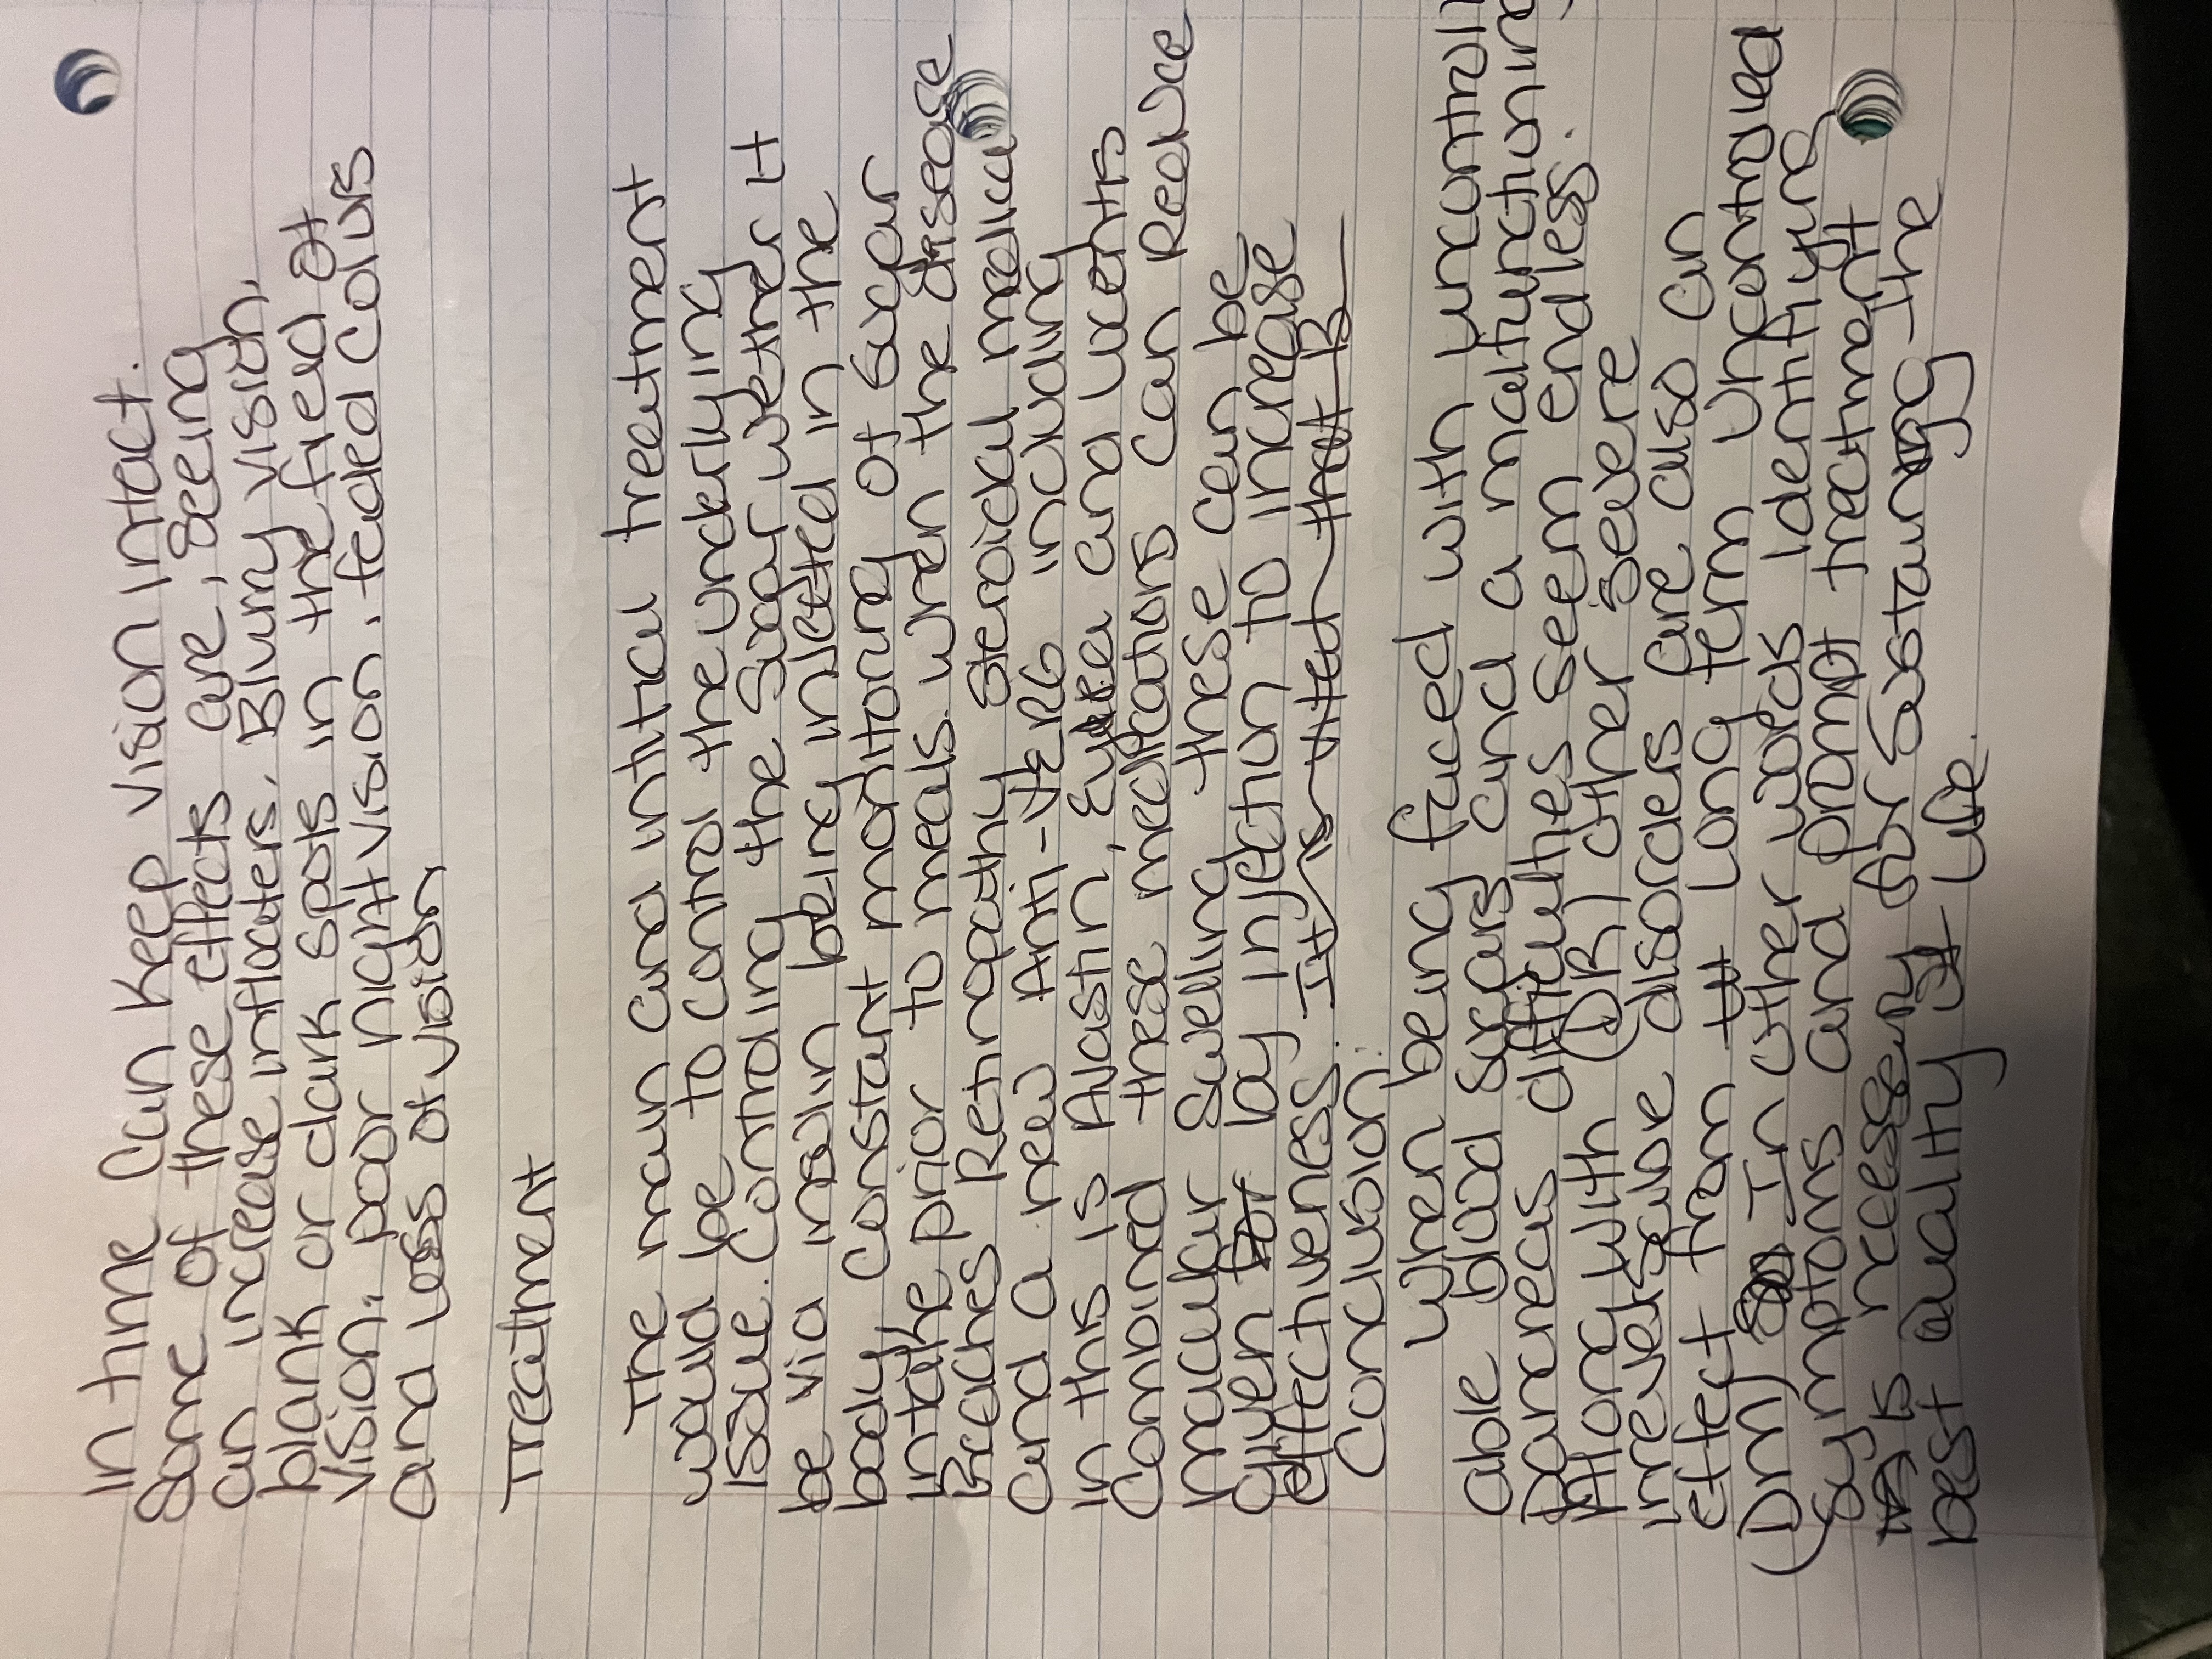 In time can keep vision intact.
Some of these effects are, seeing
an increase in floaters. Blurry vision,
blank or dark spots in the freld of
vision, poor night vision, faded colors
and loss of vision
Treatment
The main and intitial treatment
would be to control the underlying
issue. Controling the sugar wether it
be via insulin being injected in the
body, constant monitoring of sugar
intake prior to meals. When the disease
Reaches Retinopathy steroidal medica
and a new Anti-VERG including
in this is Avastin, Eylea and Lucentis
Combined these medications can Reduce
macular swelling, these can be
given for by injection to increase
effectiveness. It is vital that is
Conclusion:
When being faced with uncontroll
able blood sugars and a malfunctioning
pancreas difficulties seem endless.
Along with (DR) other severe
irreversable disorders are also an
effect from long term uncontroled
(DM) In other words identifiying
symptoms and prompt treatment
is necessary for sustaining the
best quality of life.